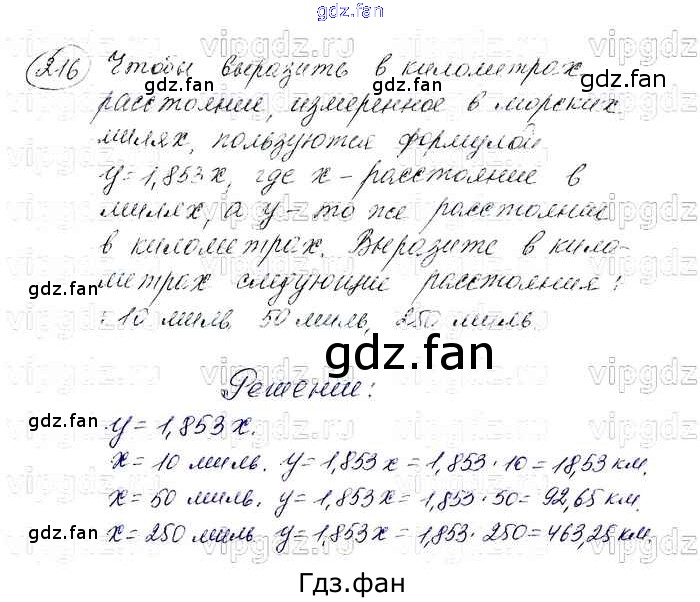 gdz.fan
316 Чтобы выразить в километрах
расстояние, измеренное в морских
милях, пользуются формулой
y=1,853x, где x – расстояние в
милях, а y – то же расстояние
в километрах. Выразите в кило-
метрах следующие расстояния:
10 миль, 50 миль, 250 миль.
gdz.fan
Решение:
y = 1,853x.
x = 10 миль. y = 1,853x = 1,853·10 = 18,53 км.
x = 50 миль. y = 1,853x = 1,853·50 = 92,65 км.
x = 250 миль. y = 1,853x = 1,853·250 = 463,25 км.
Гдз.фан